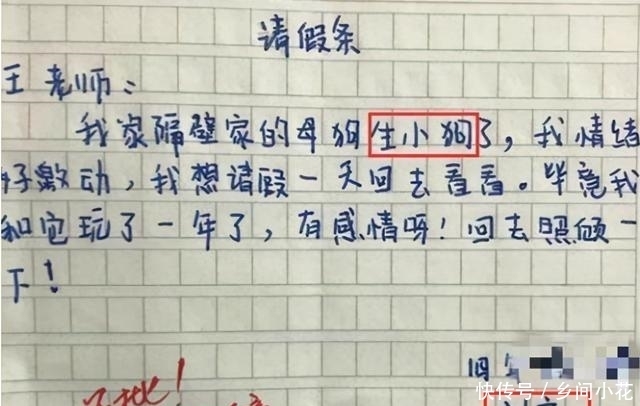 请假条
王老师：
我家隔壁家的母狗生小狗了，我情绪
好激动，我想请假一天回去看看。毕竟我
和它玩了一年了，有感情呀！回去照顾一
下！
不批！
快传号／乡间小花